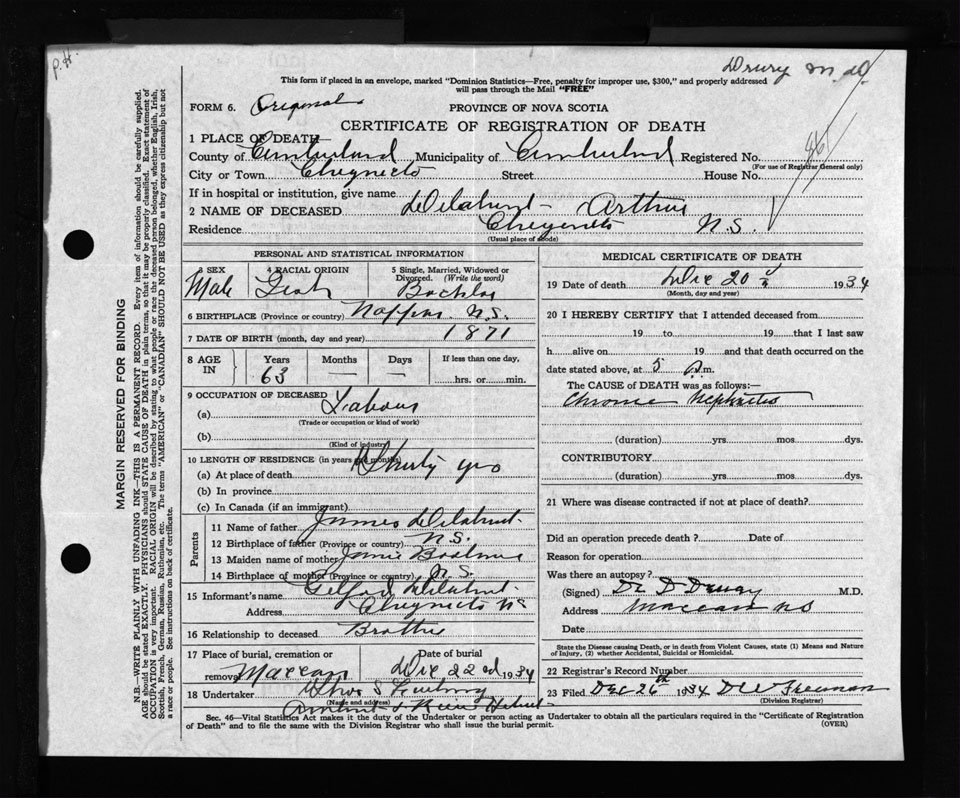 P.H.
Drury M.D.
This form if placed in an envelope, marked "Dominion Statistics—Free, penalty for improper use, $300," and properly addressed
will pass through the Mail "FREE"
FORM 6. Original PROVINCE OF NOVA SCOTIA
CERTIFICATE OF REGISTRATION OF DEATH
1 PLACE OF DEATH
County of Cumberland Municipality of Cumberland Registered No.
(For use of Registrar General only)
City or Town Chignecto Street House No.
If in hospital or institution, give name
2 NAME OF DECEASED Arthur
Residence N.S.
(Usual place of abode)
PERSONAL AND STATISTICAL INFORMATION
3 SEX 4 RACIAL ORIGIN 5 Single, Married, Widowed or Divorced. (Write the word)
Male
6 BIRTHPLACE (Province or country) Nappan N.S.
7 DATE OF BIRTH (month, day and year) 1871
8 AGE IN Years Months Days If less than one day,
63 — — hrs. or min.
9 OCCUPATION OF DECEASED
(a) Labour
(Trade or occupation or kind of work)
(b)
(Kind of industry)
10 LENGTH OF RESIDENCE (in years and months)
(a) At place of death Thirty yrs
(b) In province
(c) In Canada (if an immigrant)
Parents
11 Name of father James
12 Birthplace of father (Province or country) N.S.
13 Maiden name of mother
14 Birthplace of mother (Province or country) N.S.
15 Informant's name
Address Chignecto NS
16 Relationship to deceased Brother
17 Place of burial, cremation or removal Maccan Date of burial Dec 22nd 1934
18 Undertaker
(Name and address)
MEDICAL CERTIFICATE OF DEATH
19 Date of death Dec 20 1934
(Month, day and year)
20 I HEREBY CERTIFY that I attended deceased from
19 to 19 that I last saw
h alive on 19 and that death occurred on the
date stated above, at 5 m.
The CAUSE OF DEATH was as follows:—
Chronic Nephritis
(duration) yrs. mos. dys.
CONTRIBUTORY
(duration) yrs. mos. dys.
21 Where was disease contracted if not at place of death?
Did an operation precede death ? Date of
Reason for operation
Was there an autopsy?
(Signed) Dr D Drury M.D.
Address Maccan NS
Date
State the Disease causing Death, or in death from Violent Causes, state (1) Means and Nature
of Injury, (2) whether Accidental, Suicidal or Homicidal.
22 Registrar's Record Number
23 Filed Dec 26th 1934 Freeman
(Division Registrar)
Sec. 46—Vital Statistics Act makes it the duty of the Undertaker or person acting as Undertaker to obtain all the particulars required in the "Certificate of Registration
of Death" and to file the same with the Division Registrar who shall issue the burial permit. (OVER)
MARGIN RESERVED FOR BINDING
N.B.—WRITE PLAINLY WITH UNFADING INK—THIS IS A PERMANENT RECORD. Every item of information should be carefully supplied.
AGE should be stated EXACTLY. PHYSICIANS should STATE CAUSE OF DEATH in plain terms, so that it may be properly classified. Exact statement of
OCCUPATION is very important. RACIAL ORIGIN will be described by stating to what people or race the deceased person belonged, whether English, Irish,
Scottish, French, German, Russian, Ruthenian, etc. The terms "AMERICAN" or "CANADIAN" SHOULD NOT BE USED as they express citizenship but not
a race or people. See instructions on back of certificate.